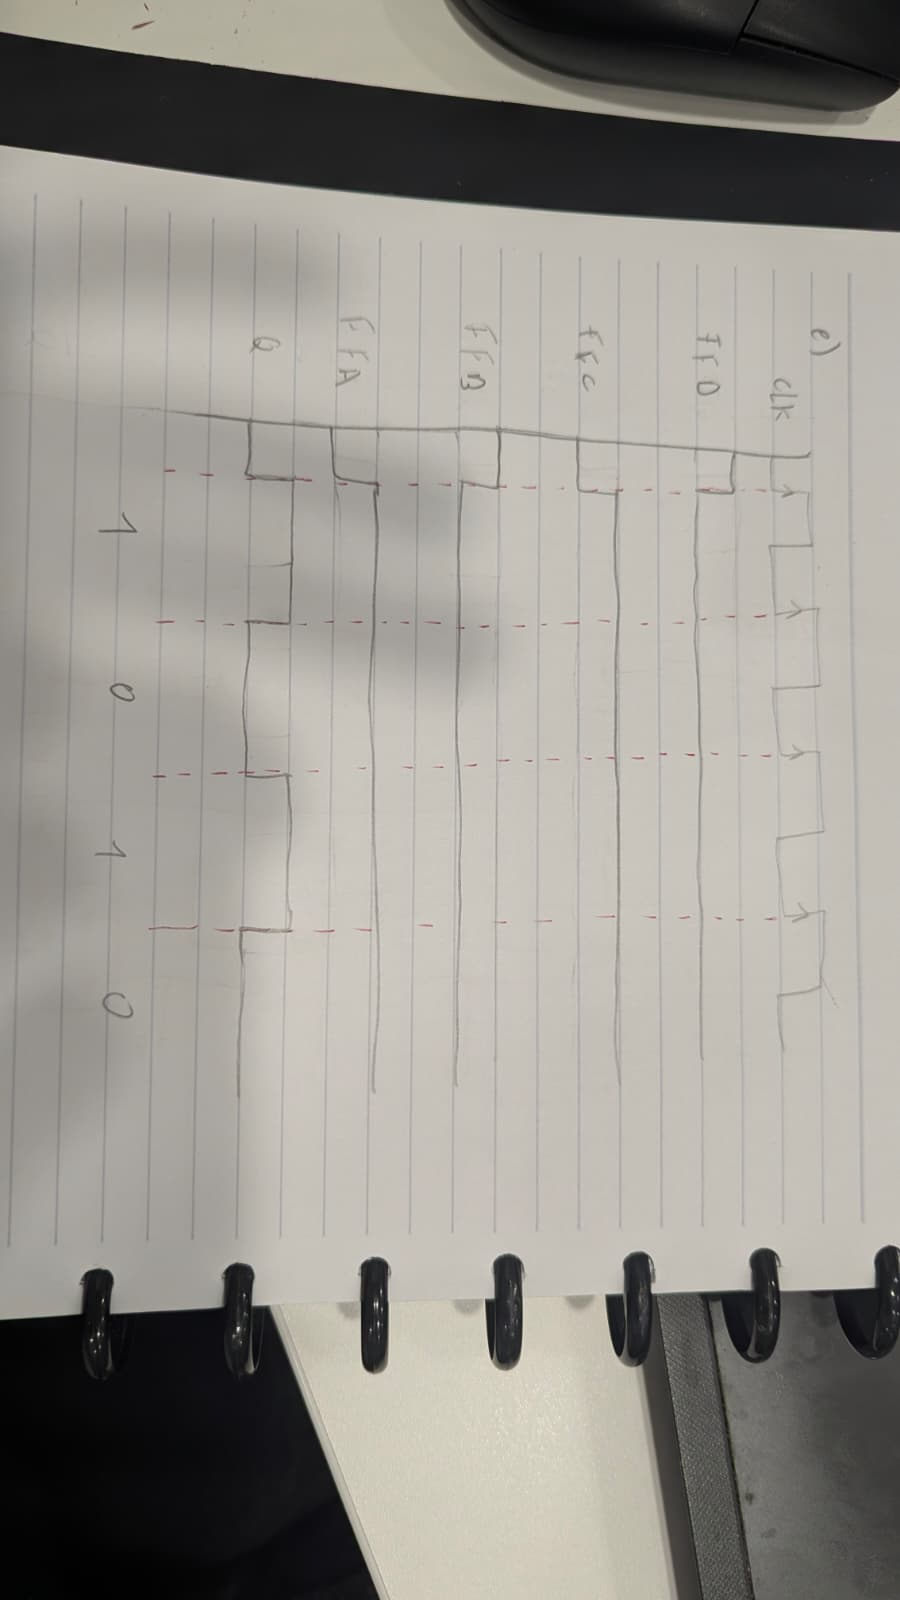 e)
CLK
FFD
FFC
FFB
FFA
Q
1 0 1 0